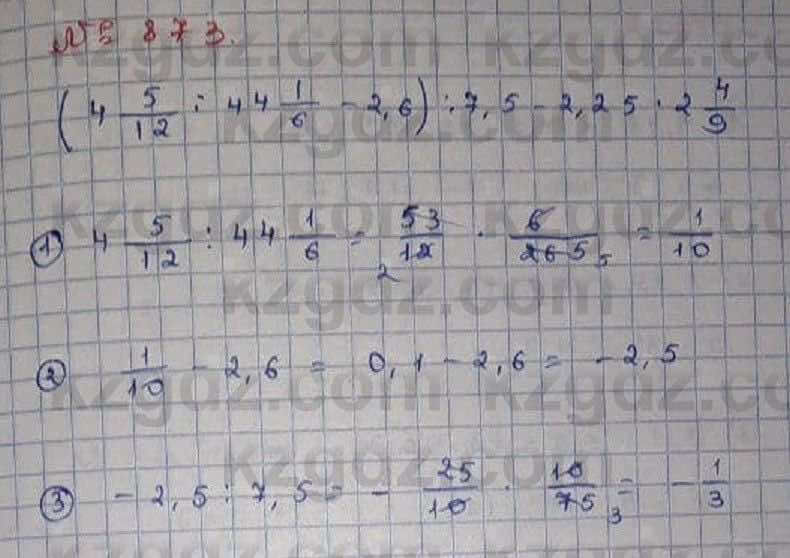 № 873.
(4 5/12 : 44 1/6 - 2,6) : 7,5 - 2,25 · 2 4/9
① 4 5/12 : 44 1/6 = 53/12 2 · 6/265 5 = 1/10
② 1/10 - 2,6 = 0,1 - 2,6 = -2,5
③ -2,5 : 7,5 = - 25/10 · 10/75 3 = - 1/3
kzgdz.com